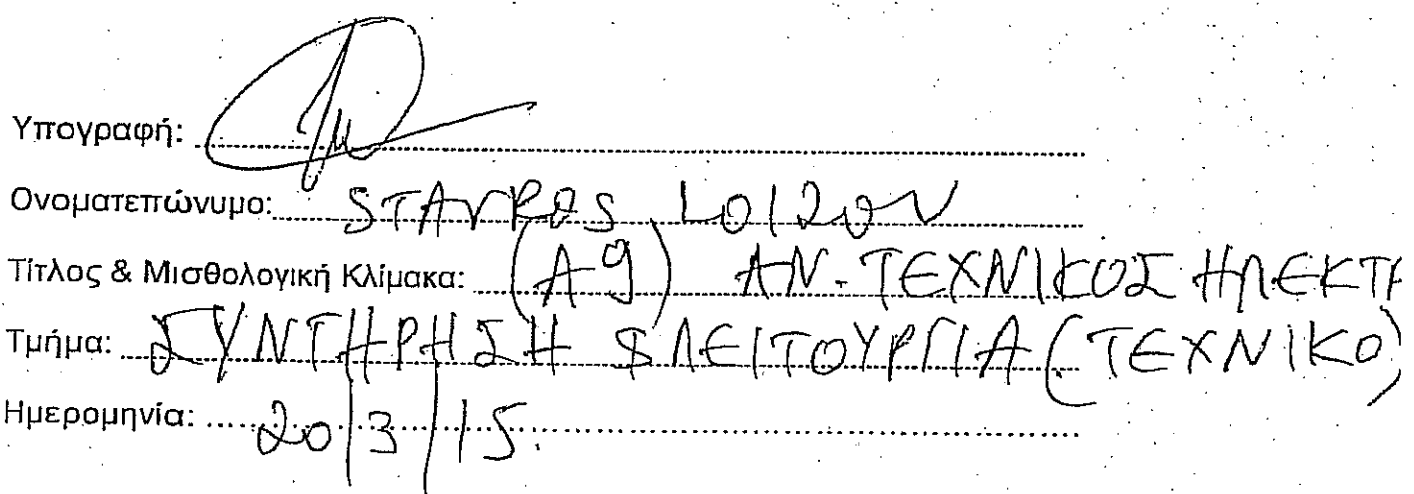 Υπογραφή:
Ονοματεπώνυμο: STAVROS LOIZOU
Τίτλος & Μισθολογική Κλίμακα: (A9) ΑΝ. ΤΕΧΝΙΚΟΣ ΗΛΕΚΤΡ
Τμήμα: ΣΥΝΤΗΡΗΣΗ & ΛΕΙΤΟΥΡΓΙΑ (ΤΕΧΝΙΚΟ)
Ημερομηνία: 20/3/15.